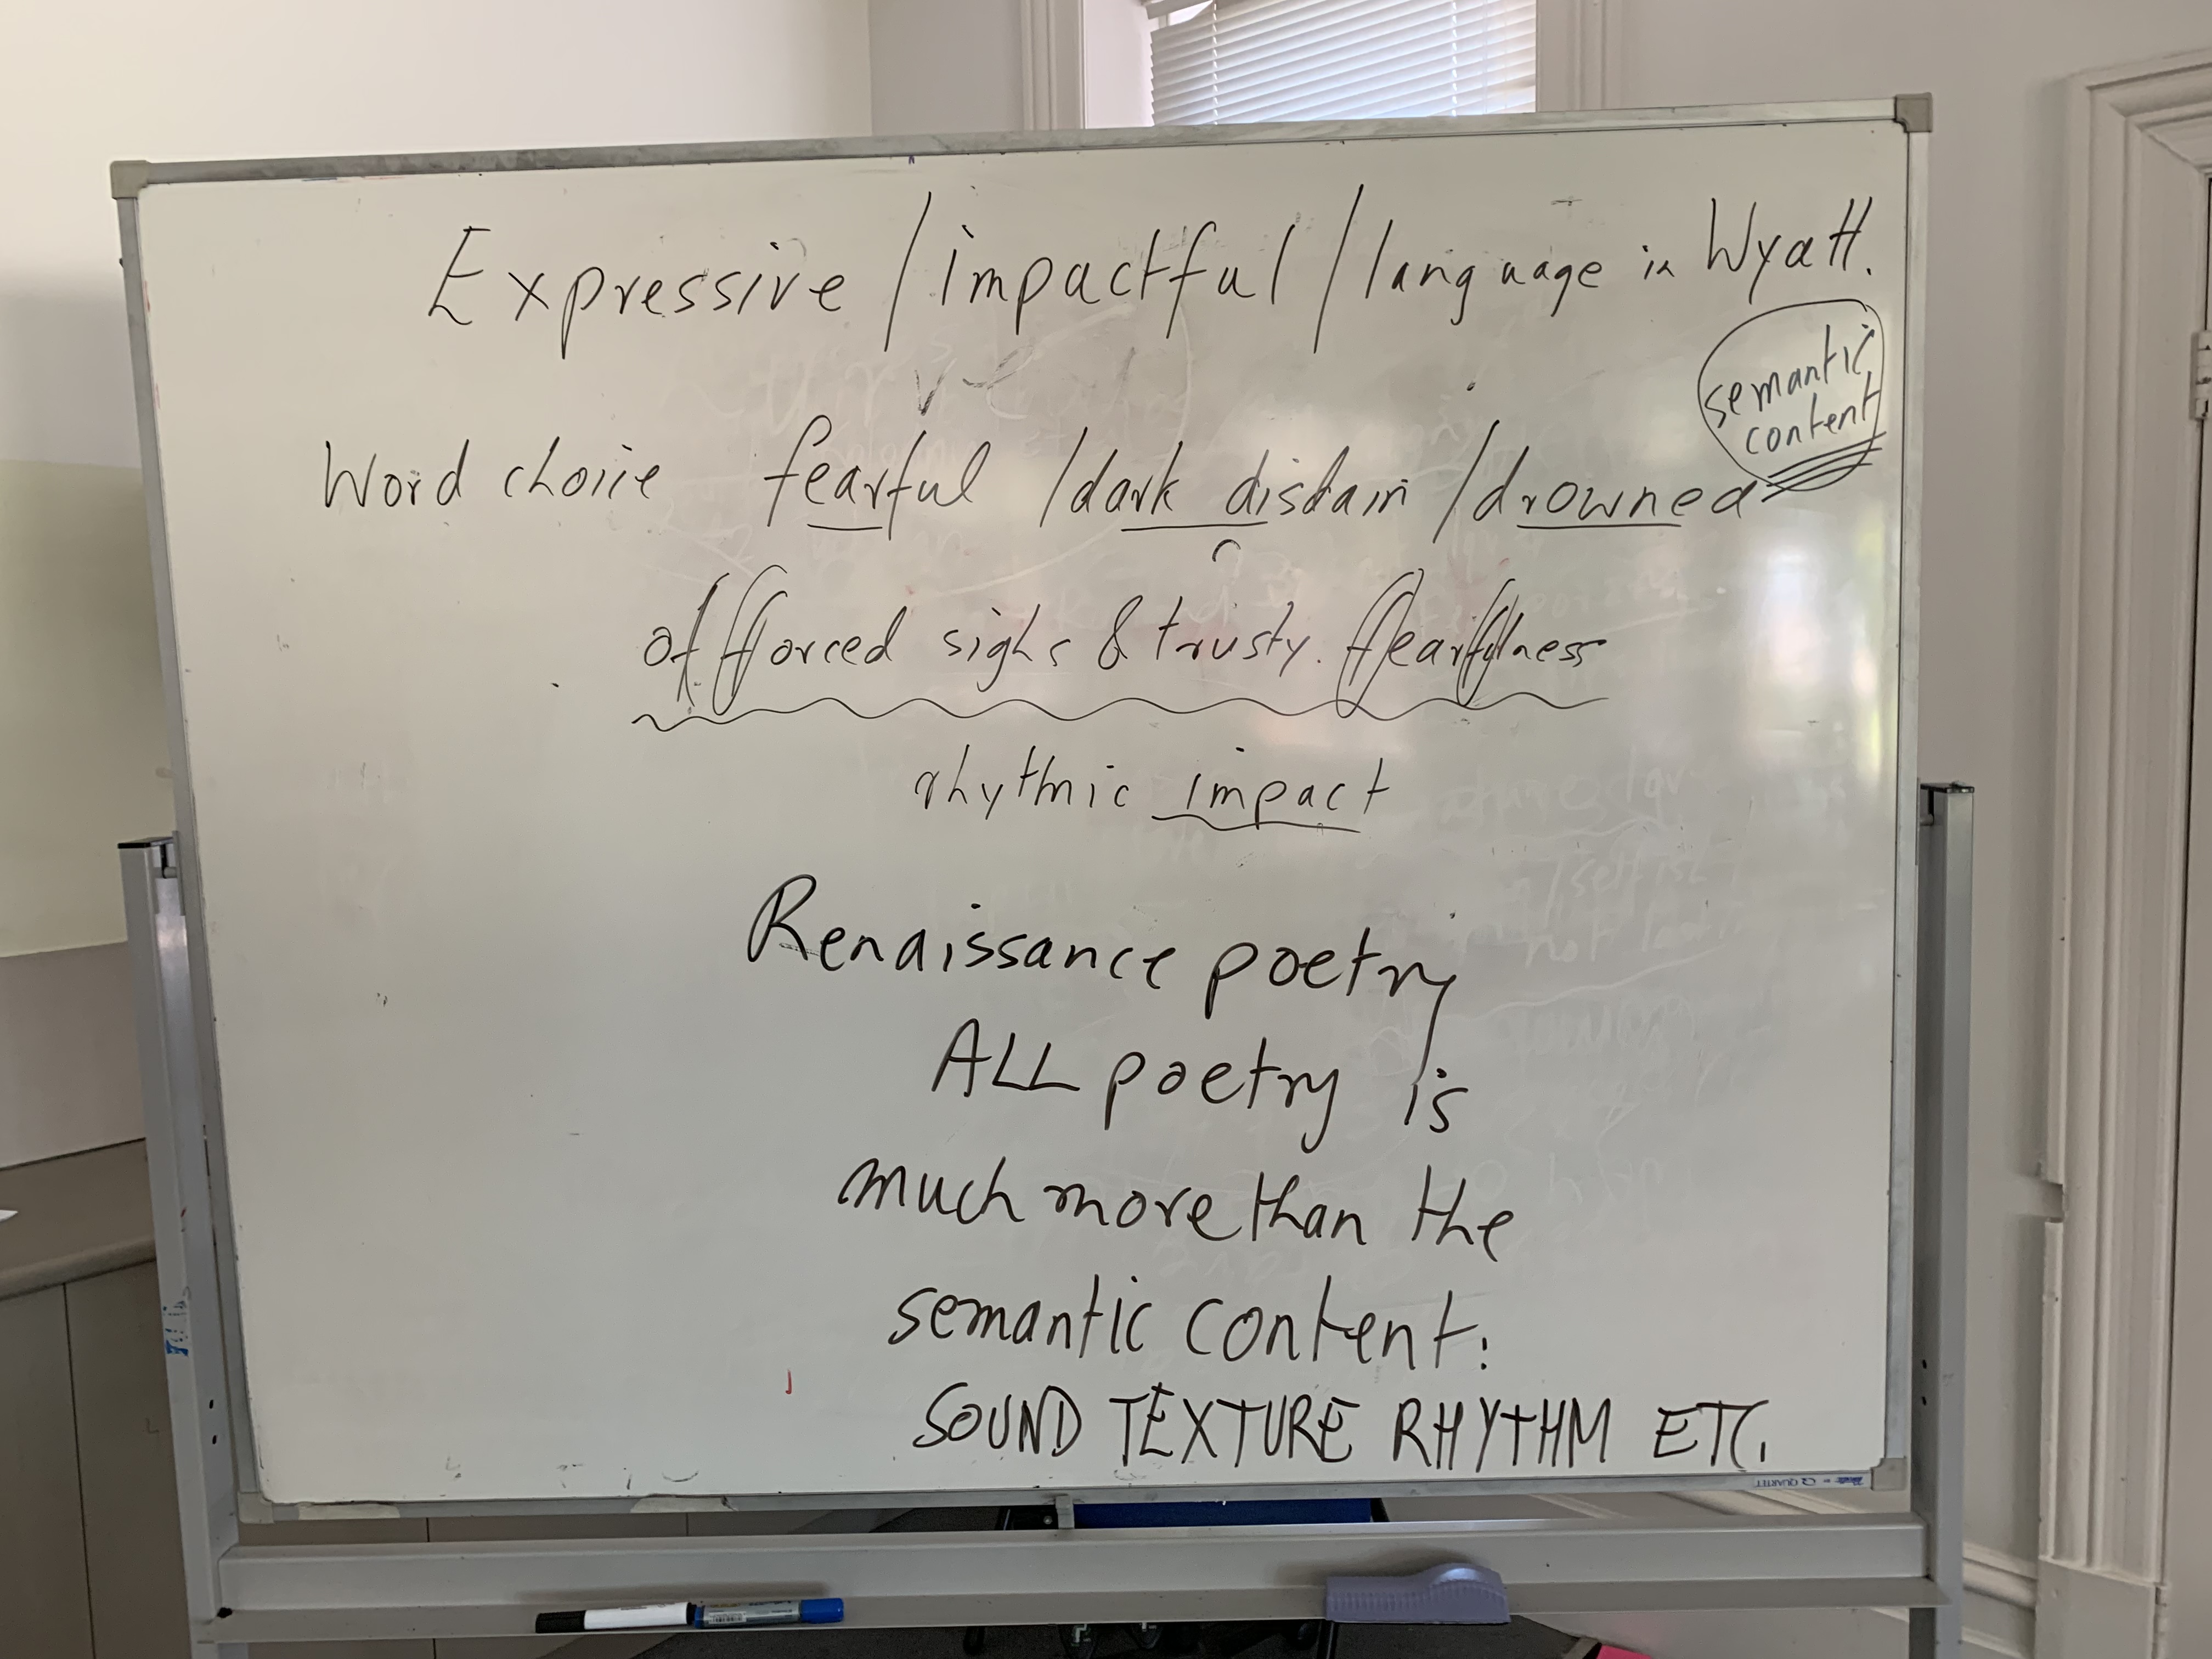 Expressive / impactful / language in Wyatt.
semantic
content
Word choice fearful / dark disdain / drowned
of forced sighs & trusty fearfulness
rhythmic impact
Renaissance poetry
ALL poetry is
much more than the
semantic content:
SOUND TEXTURE RHYTHM ETC.
QUARTET